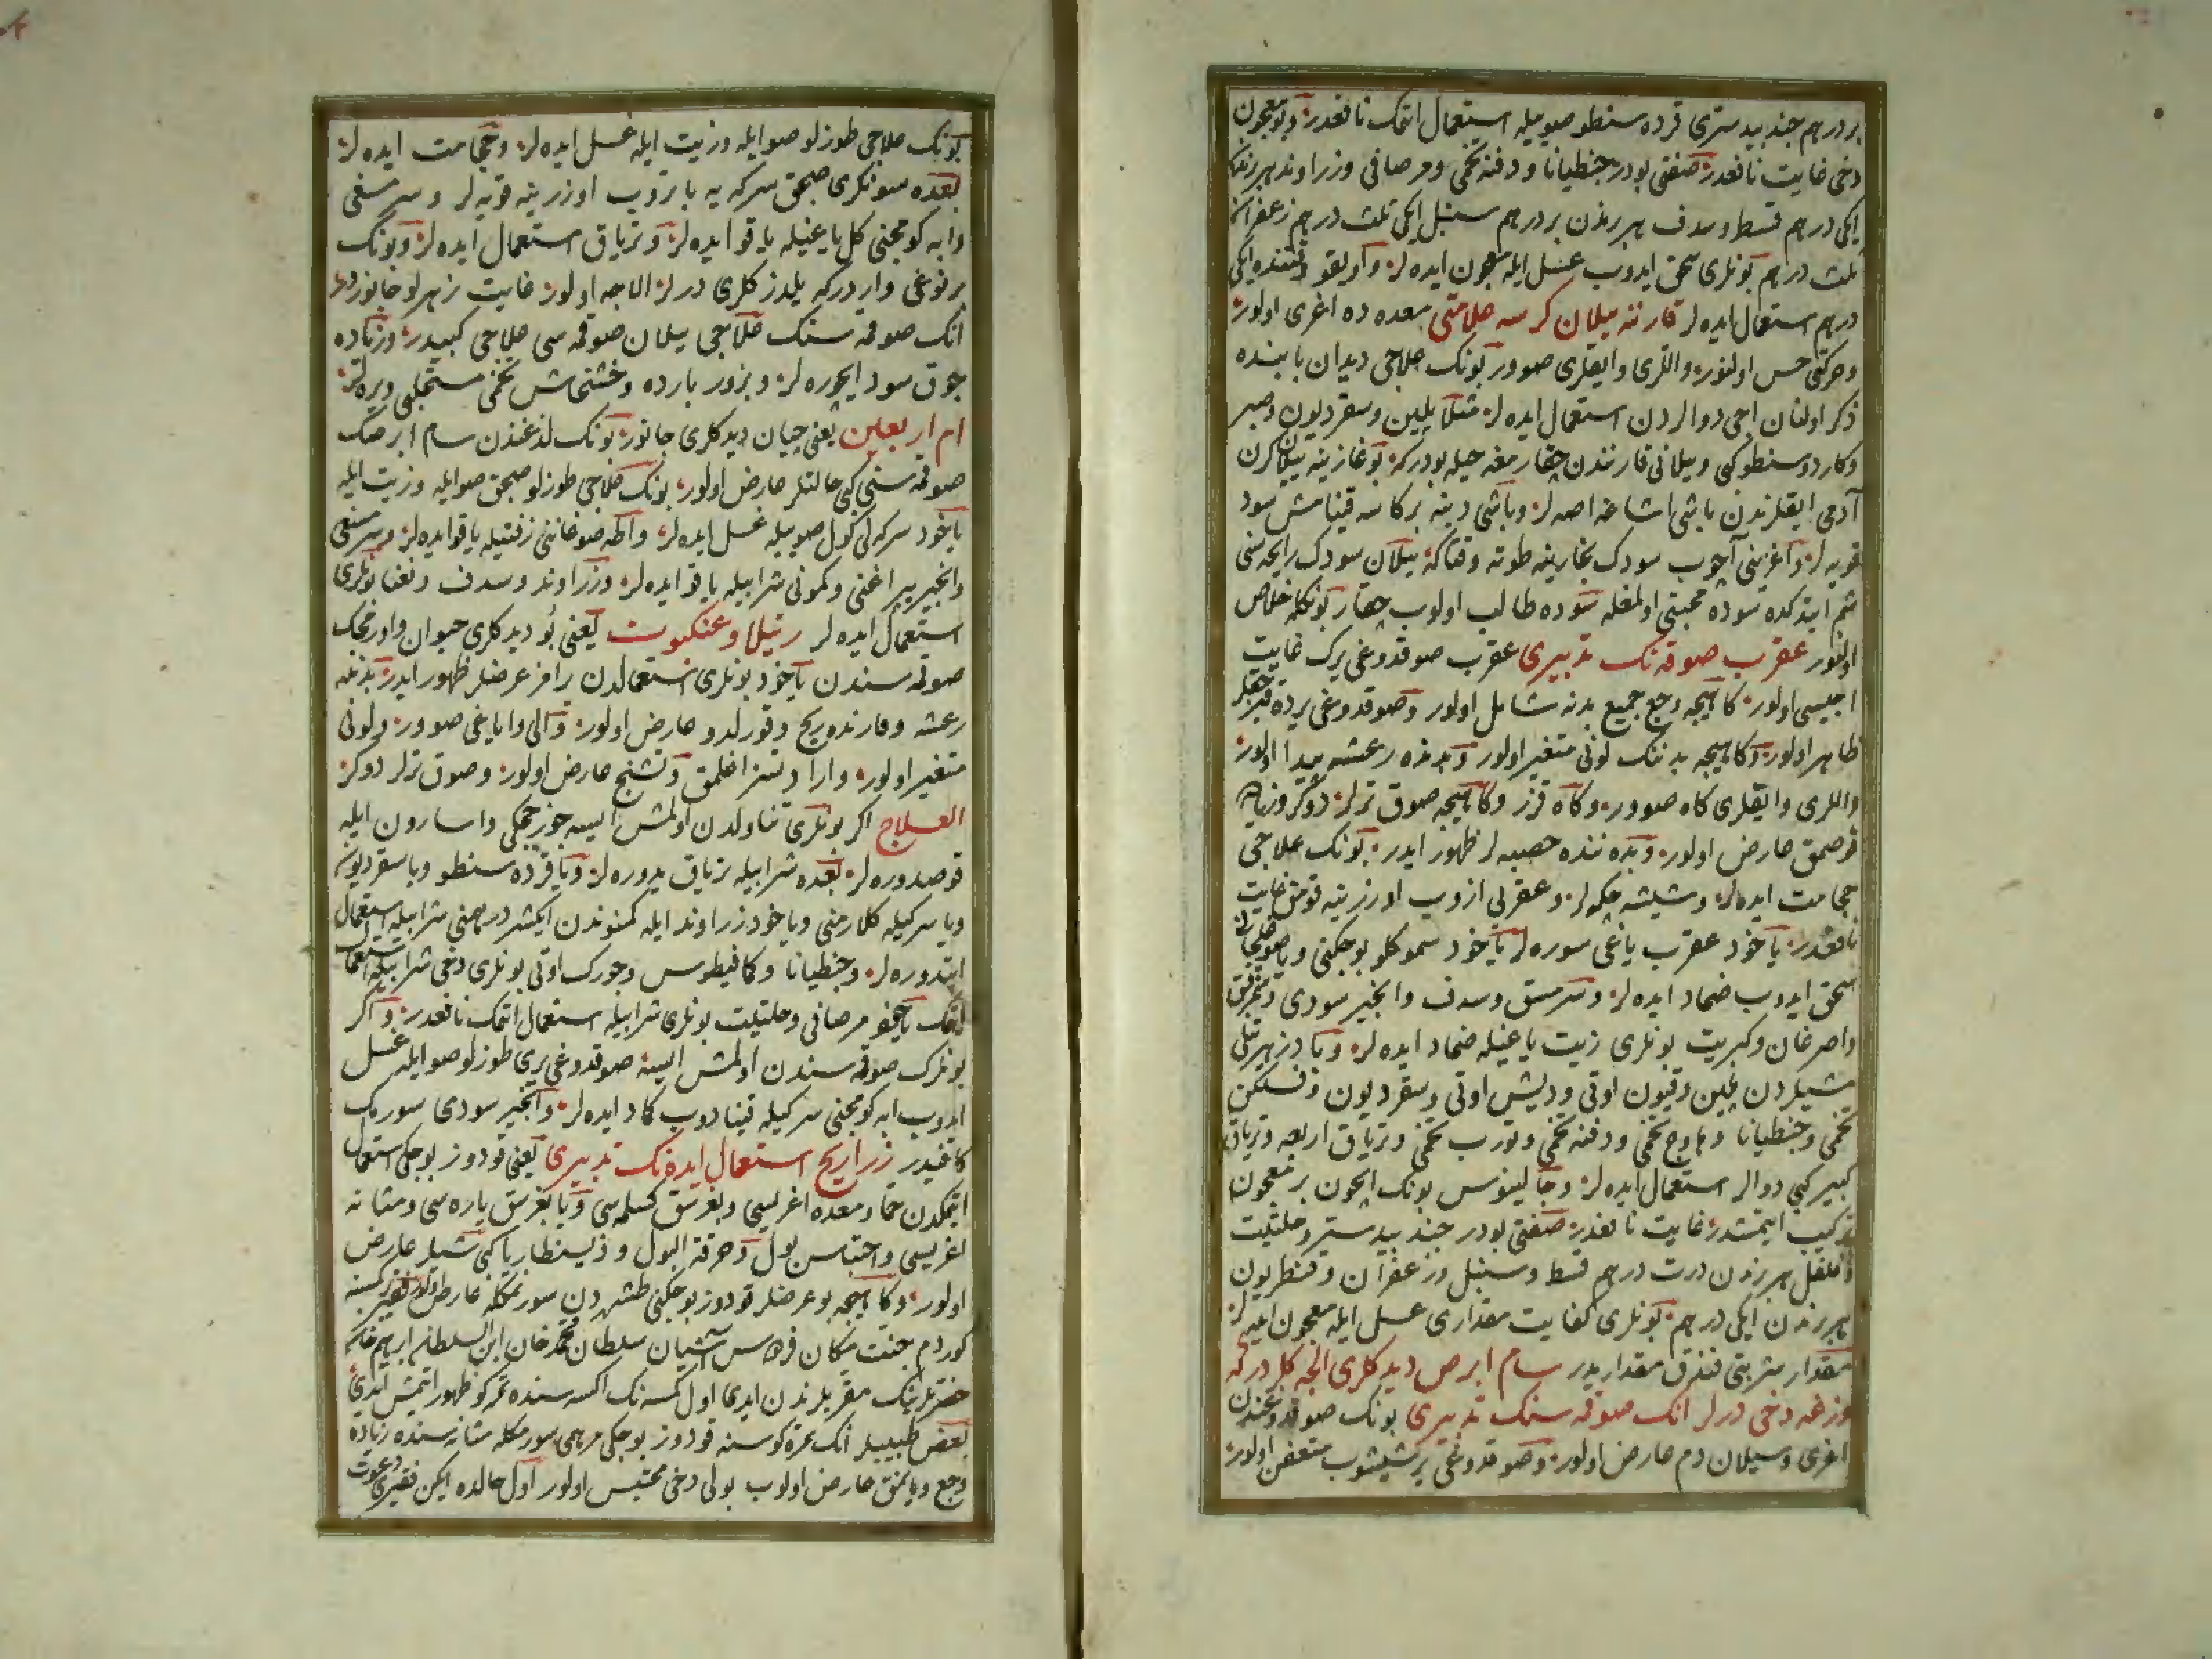 بر درهم جند بیدستری قرده سنطو صوییله استعمال اتمک نافعدر و بو معجون
دخی غایت نافعدر صنعتی بودر جنطیانا و دفنه تخمی و مر صافی و زراوند هر برندن
ایکی درهم قسط و سدف هر برندن بر درهم سنبل ایکی ثلث درهم زعفران
ثلث درهم بونلری سحق ایدوب عسل ایله معجون ایده لر و اویقو وقتنده ایکی
درهم استعمال ایده لر قارننه ییلان کرسه علامتی معده ده اغری اولور
و حرکتی حس اولنور و اللری و ایقلری صوور بونک علاجی دیدان بابنده
ذکر اولنان اجی دوالردن استعمال ایده لر مثلا پلین و سقردیون و صبر
و کاردوسنطو کبی و ییلانی قارنندن چقارمغه حیله بودرکه بوغازینه ییلان کرن
آدمی ایقلرندن باشی اشاغه اصه لر و باشی دینه بر کاسه قینامش سود
قویه لر و آغزینی آچوب سودک بخارینه طوته وقتاکه ییلان سودک رایحه سنی
شم ایتدکده سوده محبتی اولمغله سوده طالب اولوب چقار بونکله خلاص
اولنور عقرب صوقه نک تدبیری عقرب صوقدوغی یرک غایت
اجیسی اولور کاهیجه وجع جمیع بدنه شامل اولور و صوقدوغی یرده قبرجقلر
ظاهر اولور و کاهیجه بدننک لونی متغیر اولور و بدنده رعشه پیدا اولور
و اللری و ایقلری کاه صوور و کاه قزر و کاهیجه صوق ترلر دوکر و زیاده
قوصمق عارض اولور و بدننده حصبه لر ظهور ایدر بونک علاجی
حجامت ایده لر و شیشه چکه لر و عقربی ازوب اوزرینه قومق غایت
نافعدر یاخود عقرب یاغی سوره لر یاخود سموکلو بوجکنی و یا صوغلجانی
سحق ایدوب ضماد ایده لر و سرمسق و سدف و انجیر سودی
و اصرغان و کبریت بونلری زیت یاغیله ضماد ایده لر و یا
شیلردن پلین و قیون اوتی و دیش اوتی و سقردیون و فسلکن
تخمی و جنطیانا و هاوج تخمی و دفنه تخمی و تورب تخمی و تریاق اربعه و تریاق
کبیر کبی دوالر استعمال ایده لر و جالینوس بونک ایچون بر معجون
ترکیب ایتمشدر غایت نافعدر صنعتی بودر جند بیدستر و حلتیت
و فلفل هر برندن درت درهم قسط و سنبل و زعفران و قنطریون
هر برندن ایکی درهم بونلری کفایت مقداری عسل ایله معجون ایده لر
مقدار شربتی فندق مقداریدر سام ابرص دیدکلری الجه کلردرکه
وزغه دخی درلر انک صوقه سنک تدبیری بونک صوقدوغندن
اغری و سیلان دم عارض اولور و صوقدوغی یر شیشوب متعفن اولور
بونک علاجی طوزلو صو ایله و زیت ایله غسل ایده لر و حجامت ایده لر
بعده سونکری صجق سرکه یه باتروب اوزرینه قویه لر و سرمسغی
و ابه کومجنی کل یاغیله یاقو ایده لر و تریاق استعمال ایده لر و بونک
بر نوعی واردرکه یلدز کلری درلر الاجه اولور غایت زهرلو جانوردر
انک صوقه سنک علاجی ییلان صوقه سی علاجی کبیدر و زیاده
چوق سود ایچوره لر و بزور بارده و خشخاش تخمی مستحلبی ویره لر
ام اربعین یعنی چیان دیدکلری جانور بونک لذغندن سام ابرصک
صوقه سنی کبی حالتلر عارض اولور بونک علاجی طوزلو صجق صو ایله و زیت ایله
یاخود سرکه لی کول صوییله غسل ایده لر و اطه صوغاننی زفتیله یاقو ایده لر و سرمسغی
و انجیر یپراغنی و کمونی شرابیله یاقو ایده لر و زراوند و سدف و نعنا بونلری
استعمال ایده لر رتیلا و عنکبوت یعنی بو دیدکلری حیوان و اورمجک
صوقه سندن یاخود بونلری استعمالدن برامز عرضلر ظهور ایدر بدننه
رعشه و قارنده ریح و قورلدو عارض اولور و الی و ایاغی صوور و لونی
متغیر اولور و ارادتسز اغلمق و تشنج عارض اولور و صوق ترلر دوکر
العلاج اکر بونلری تناولدن اولمش ایسه جوز جکی و اسارون ایله
قوصدوره لر بعده شرابیله تریاق یدوره لر و یا قرده سنطو و یا سقردیون
و یا سرکیله کلارمنی و یاخود زراوند ایله کموندن ایکیشر درهمنی شرابیله استعمال
ایتدوره لر و جنطیانا و کافیطوس و جورک اوتی بونلری دخی شرابیله استعمال
اتمک یاخود مر صافی و حلتیت بونلری شرابیله استعمال اتمک نافعدر و اکر
بونلرک صوقه سندن اولمش ایسه صوقدوغی یری طوزلو صو ایله غسل
ایدوب ابه کومجنی سرکیله قینادوب کماد ایده لر و انجیر سودی سورمک
کافیدر زراریح استعمال ایده نک تدبیری یعنی قودوز بوجکی استعمال
ایتمکدن حما و معده اغریسی و بغرسق کسلمه سی و یا بغرسق یاره سی و مثانه
اغریسی و احتباس بول و حرقة البول و ذیسنطاریا کبی شیلر عارض
اولور و کاهیجه بو عرضلر قودوز بوجکنی طشردن سورنمکله عارض اولور فقیر بر کمسنه
کوردم جنت مکان فردوس آشیان سلطان محمد خان ابن السلطان ابرهیم خان
حضرتلرینک مقربلرندن ایدی اول کمسه نک اکسه سنده تمرکو ظهور ایتمش ایدی
بعض طبیبلر انک تمرکوسنه قودوز بوجکی مرهمی سورمکله مثانه سنده زیاده
وجع و یانمق عارض اولوب بولی دخی محتبس اولور اول حالده ایکن فقیری دعوت